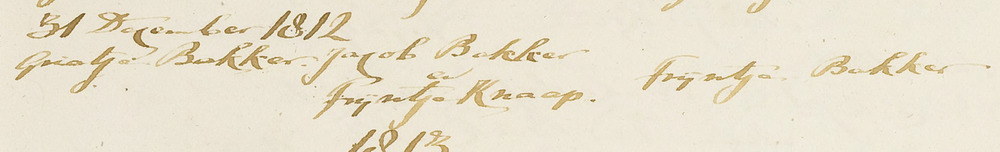 31 Dezember 1812
Grietje Bakker. Jacob Bakker
en
Trijntje Knaap.
Trijntje Bakker
1813